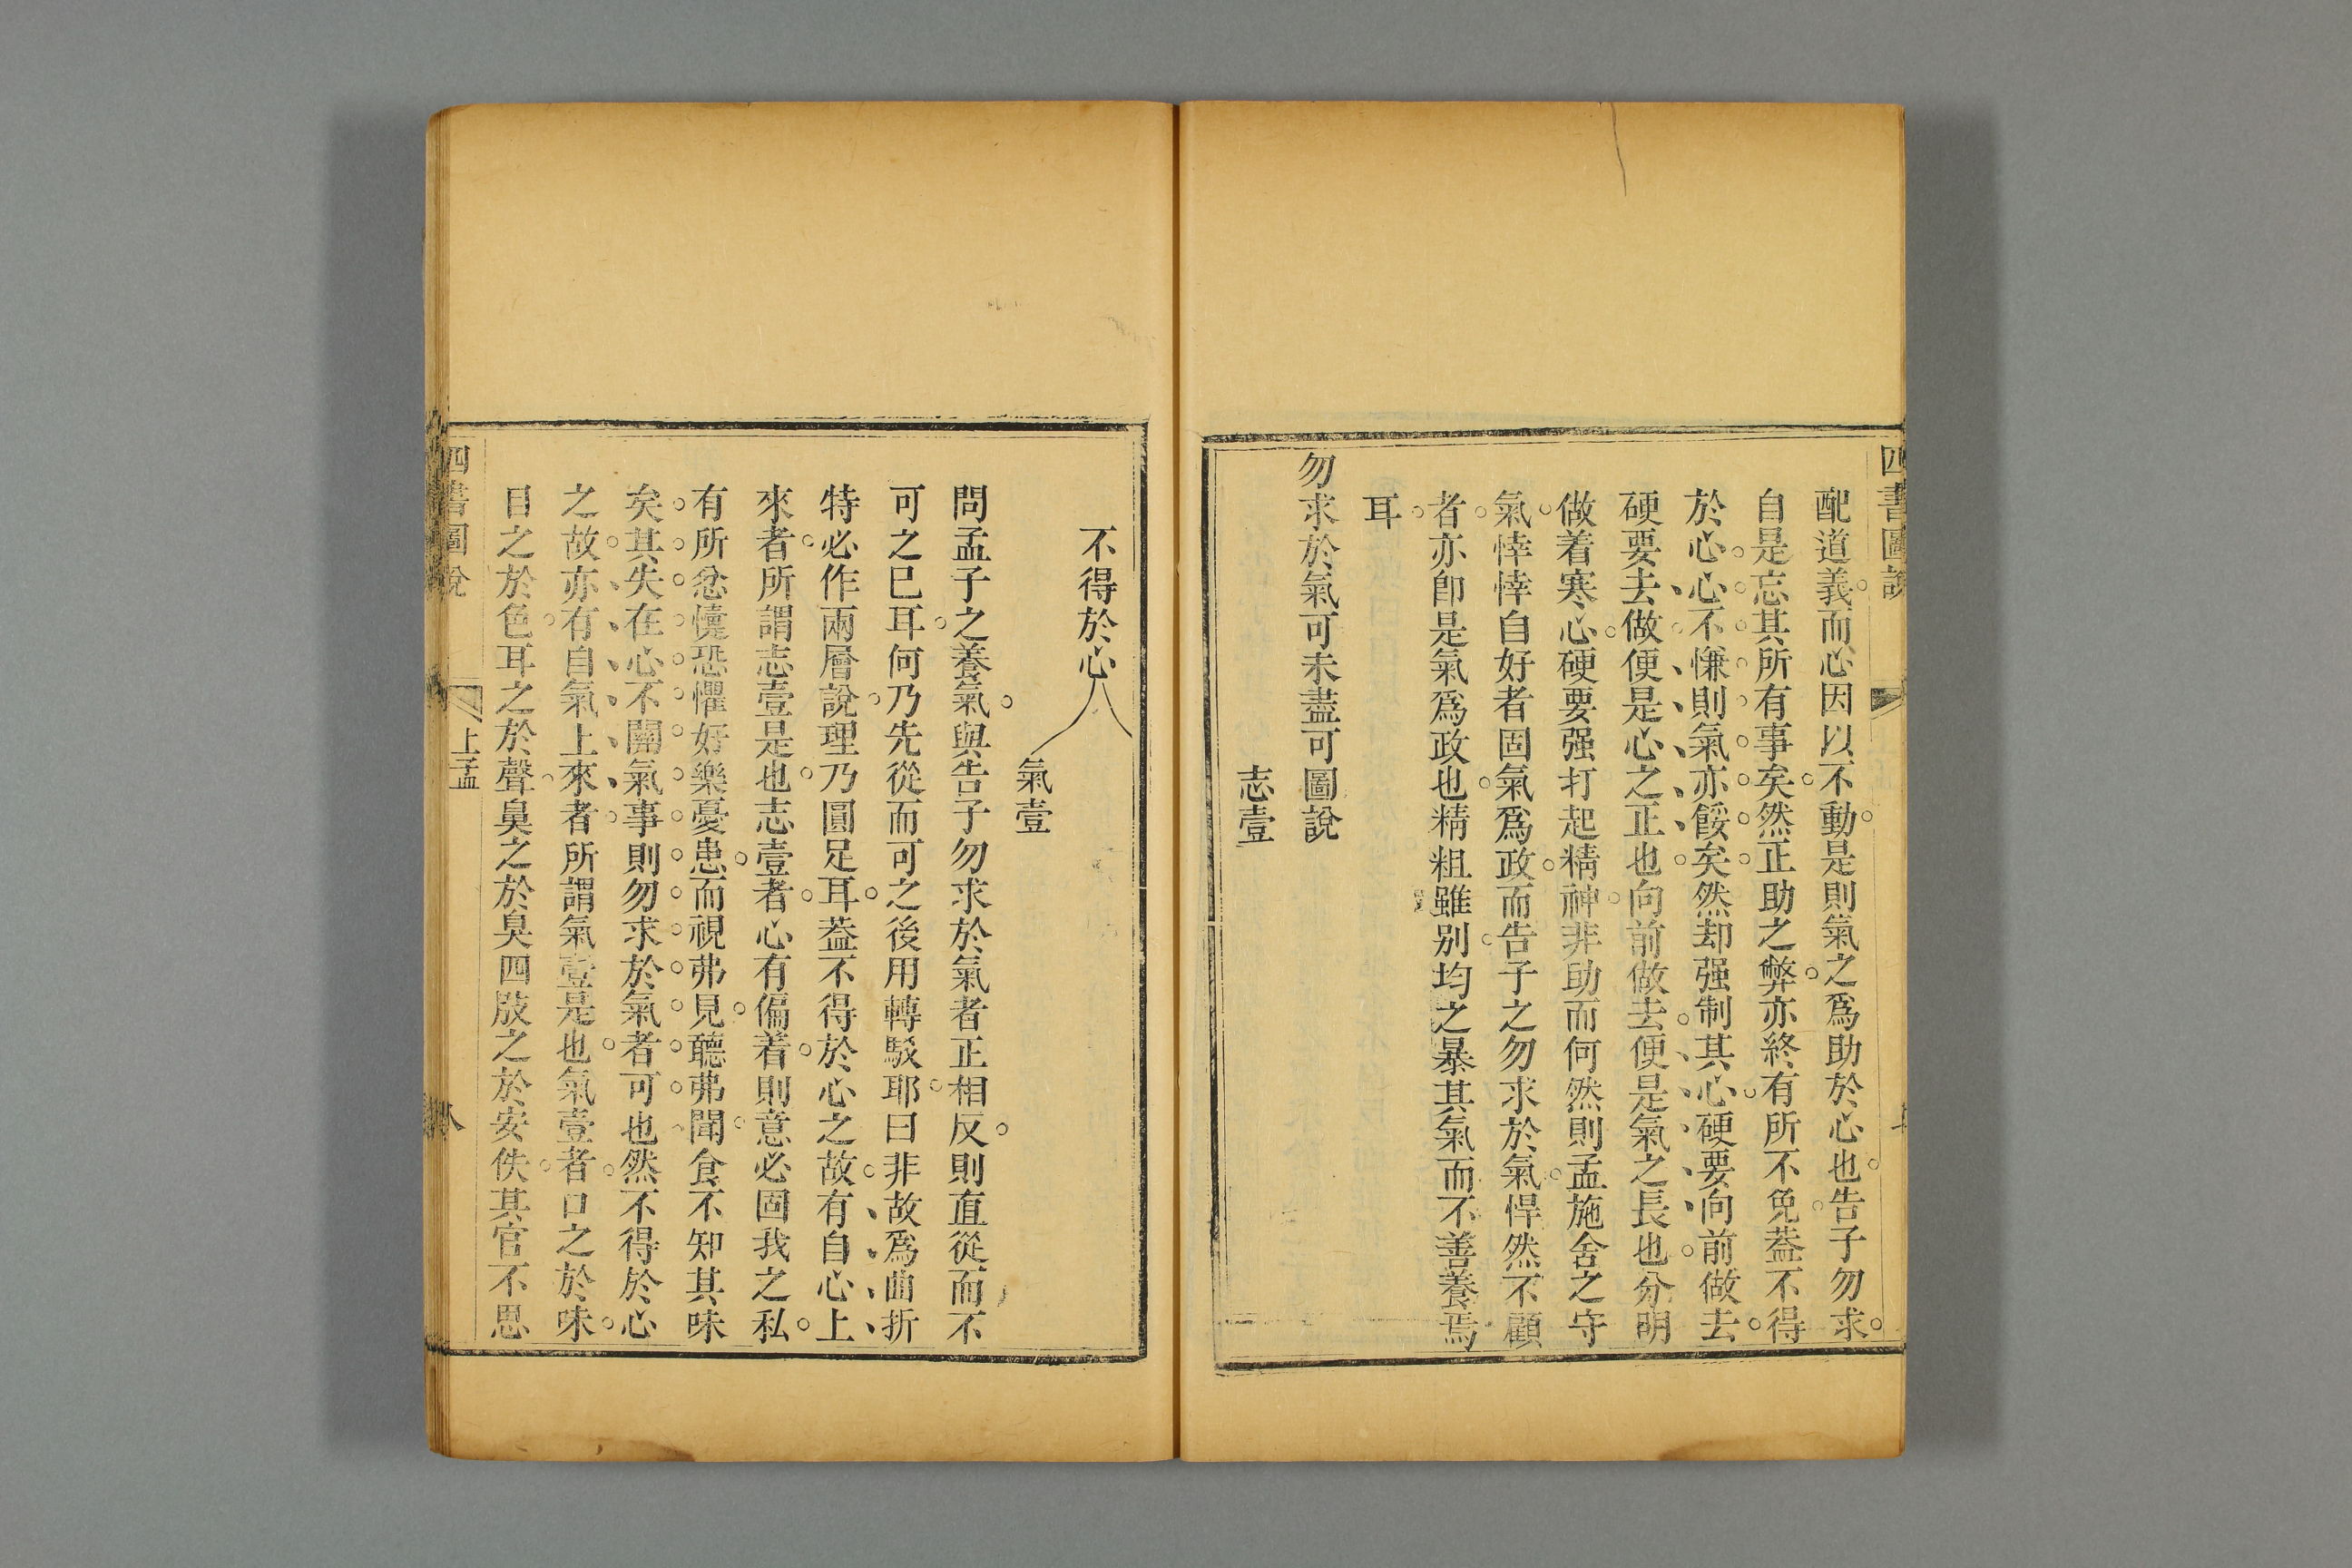 四書圖說
配道義而心因以不動是則氣之爲助於心也告子勿求
自是忘其所有事矣然正助之弊亦終有所不免葢不得
於心心不慊則氣亦餒矣然却强制其心硬要向前做去
硬要去做便是心之正也向前做去便是氣之長也分明
做着寒心硬要强打起精神非助而何然則孟施舍之守
氣悻悻自好者固氣爲政而告子之勿求於氣悍然不顧
者亦卽是氣爲政也精粗雖别均之暴其氣而不善養焉
耳
勿求於氣可未盡可圖說
志壹
不得於心
氣壹
問孟子之養氣與告子勿求於氣者正相反則直從而不
可之已耳何乃先從而可之後用轉駁耶曰非故爲曲折
特必作兩層說理乃圓足耳葢不得於心之故有自心上
來者所謂志壹是也志壹者心有偏着則意必固我之私
有所忿懥恐懼好樂憂患而視弗見聽弗聞食不知其味
矣其失在心不關氣事則勿求於氣者可也然不得於心
之故亦有自氣上來者所謂氣壹是也氣壹者口之於味
目之於色耳之於聲臭之於臭四肢之於安佚其官不思
四書圖說
上孟
八